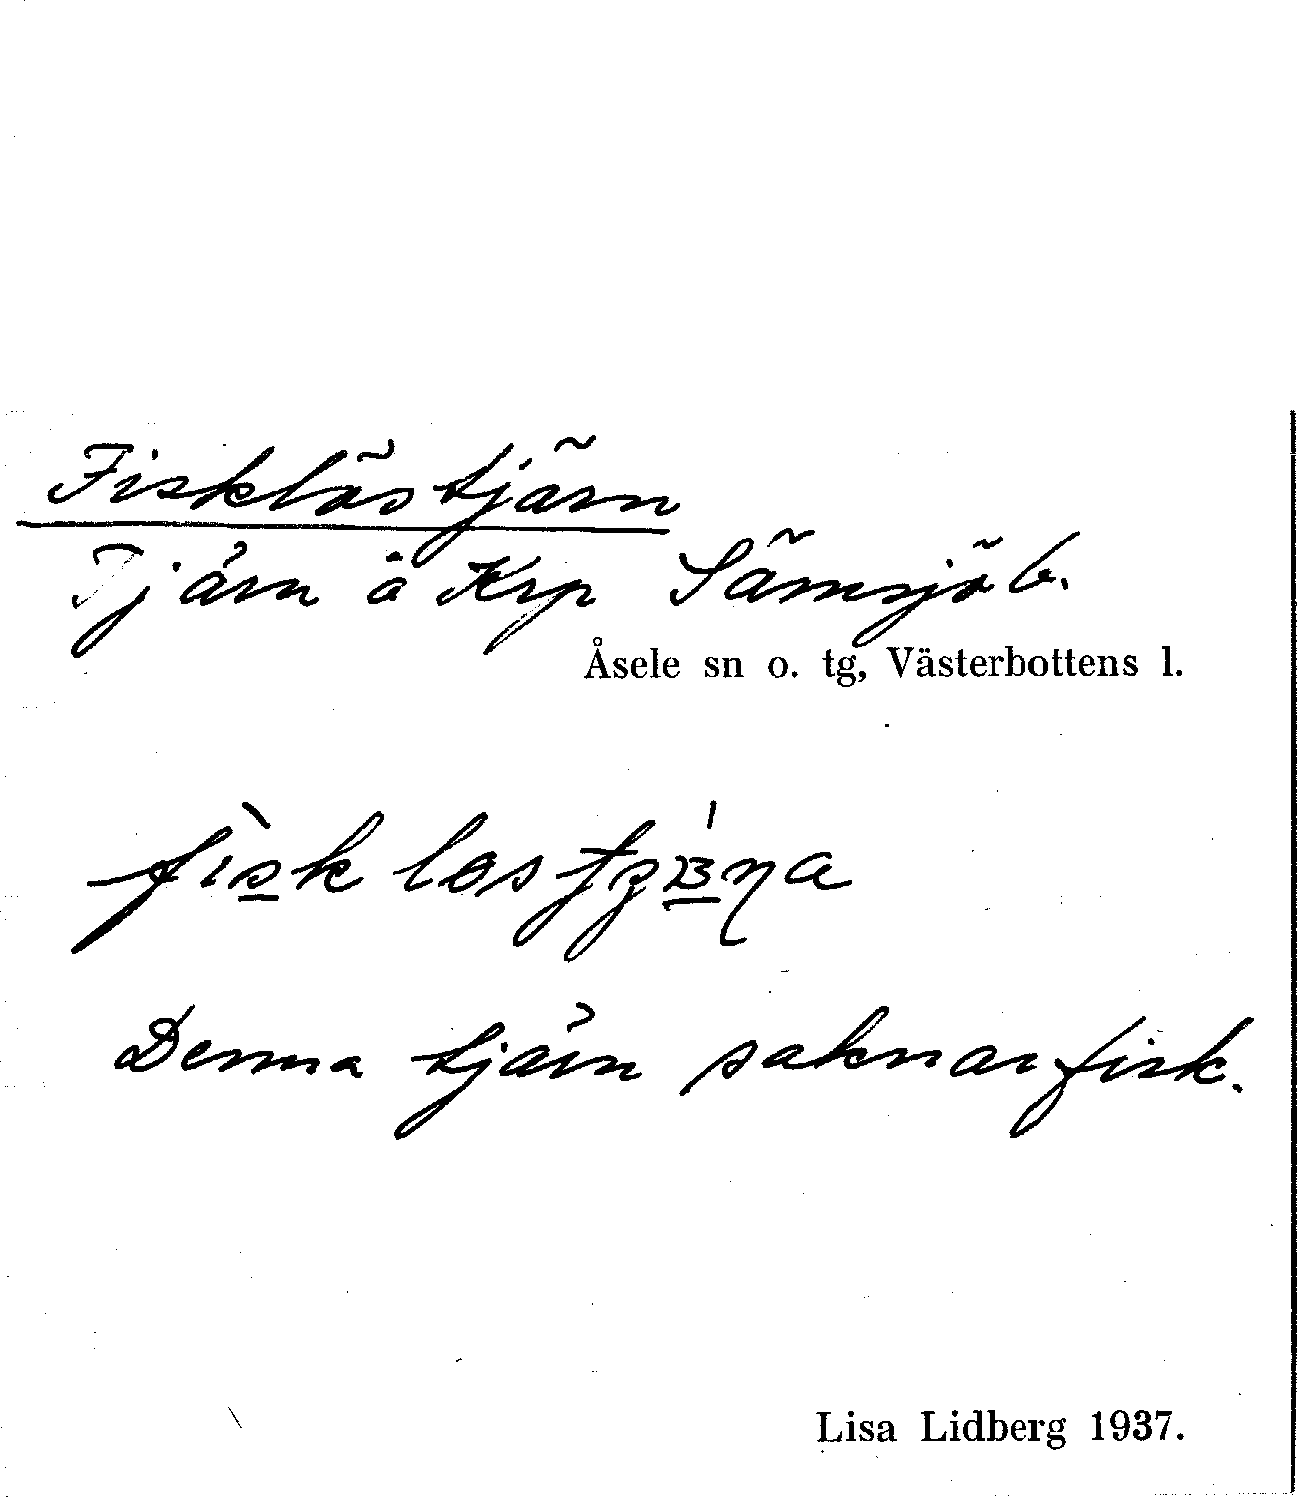 Fisklöstjärn
Tjärn å Krp Sämsjö b.
Åsele sn o. tg, Västerbottens l.
Denna tjärn saknar fisk.
Lisa Lidberg 1937.